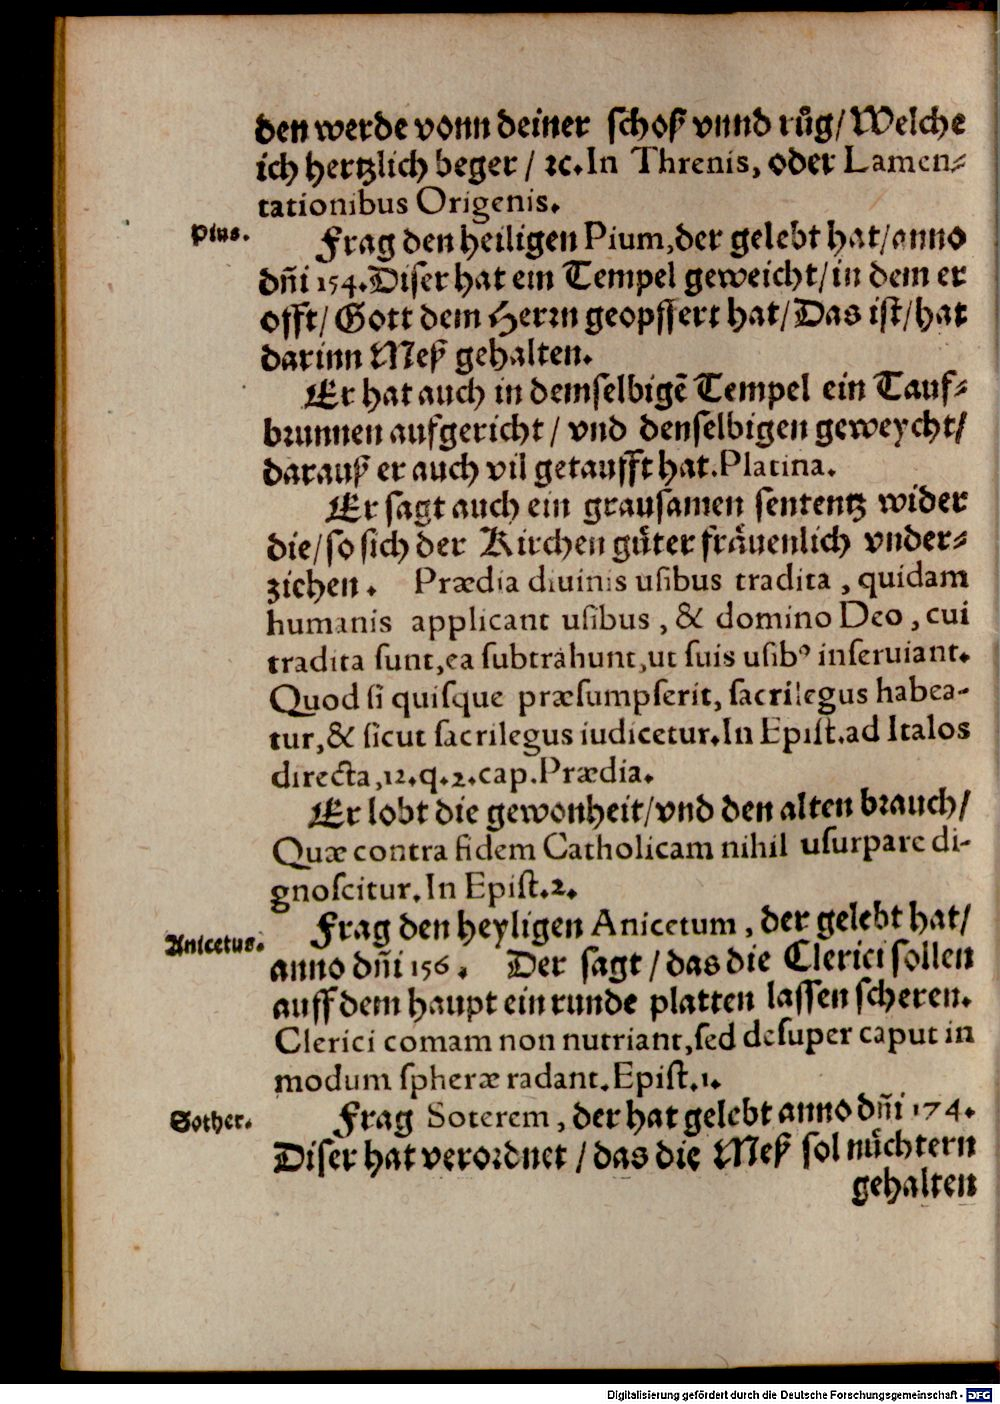 den werde vonn deiner schoß vnnd růg/ Welche
ich hertzlich beger / ꝛc. In Threnis, oder Lamen⸗
tationibus Origenis.
Pius.
Frag den heiligen Pium, der gelebt hat/ anno
dñi 154. Diser hat ein Tempel geweicht/ in dem er
offt/ Gott dem Herrn geopffert hat/ Das ist/ hat
darinn Meß gehalten.
Er hat auch in demselbigē Tempel ein Tauf⸗
brunnen aufgericht / vnd denselbigen geweycht/
darauß er auch vil getaufft hat. Platina.
Er sagt auch ein grausamen sententz wider
die/ so sich der Kirchen guͤter fraͤuenlich vnder⸗
ziehen. Prædia diuinis usibus tradita, quidam
humanis applicant usibus, & domino Deo, cui
tradita sunt, ea subtrahunt, ut suis usibꝰ inseruiant.
Quod si quisque præsumpserit, sacrilegus habea-
tur, & sicut sacrilegus iudicetur. In Epist. ad Italos
directa, 12. q. 2. cap. Prædia.
Er lobt die gewonheit/ vnd den alten brauch/
Quæ contra fidem Catholicam nihil usurpare di-
gnoscitur. In Epist. 2.
Anicetus.
Frag den heyligen Anicetum, der gelebt hat/
anno dñi 156. Der sagt / das die Clerici sollen
auff dem haupt ein runde platten lassen scheren.
Clerici comam non nutriant, sed desuper caput in
modum spheræ radant. Epist. 1.
Sother.
Frag Soterem, der hat gelebt anno dñi 174.
Diser hat verordnet / das die Meß sol nuͤchtern
gehalten
Digitalisierung gefördert durch die Deutsche Forschungsgemeinschaft - DFG